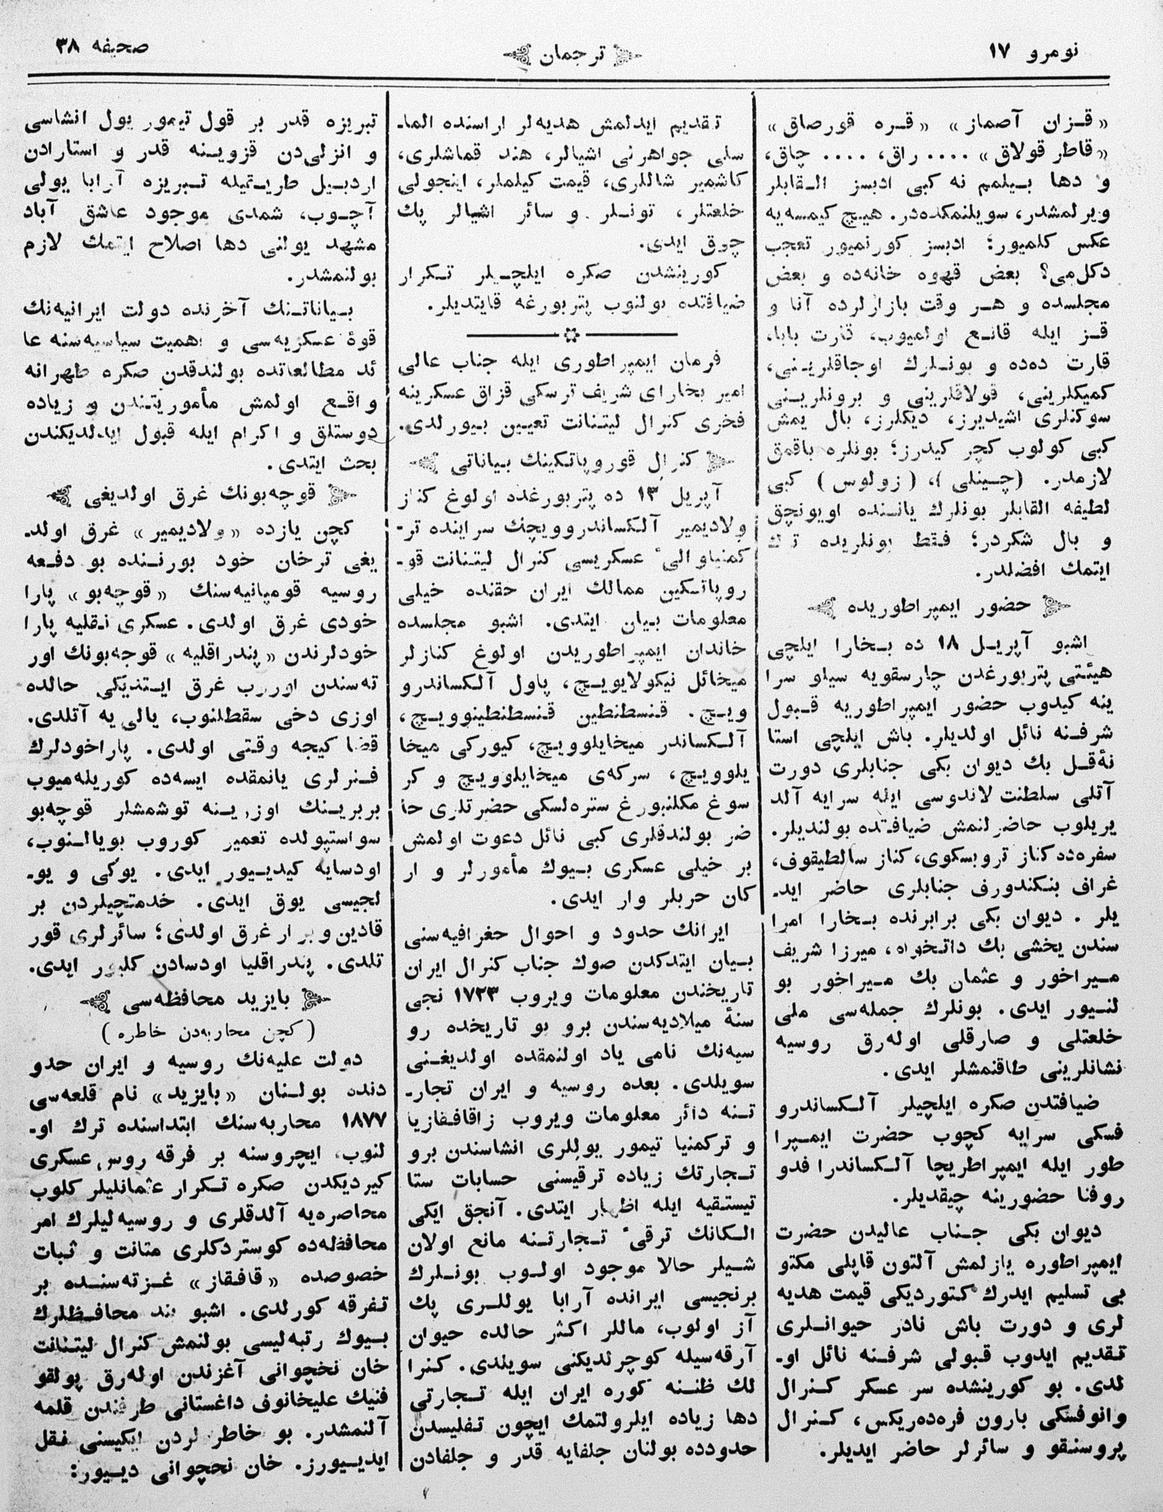 نومرو ١٧
ترجمان
صحیفه ٣٨
«قـزان آصماز» «قـره قورصاق»
«قاطر قولاق» .... راق، .... چاق،
و دها بـیلمم نه کبی ادبسز الـقابلر
ویرلمشدر، سویلنمکده‌در. هیـچ کیمسه‌یه
عکس کلمیور؛ ادبسز کورنمیور تعجب
دکل‌می؟ بعض قهوه خانه‌ده و بعض
مجلسده و هـر وقت بازارلرده آنا و
قـز ایله قانـع اولمیوب، قارت بابا،
قارت ده‌ده و بونـلرك اوجاقلریـنی،
کمیکلرینی، قولاقلرینی و برونلریـنی
سوکنلری اشیدیرز، دیکلرز، بال یمش
کبی کولوب کچر کیدرز؛ بونلره باقمق
لازمدر. (چـینلی)، (زولوس) کبی
لطیفه القابلر بونلرك یانـنده اویونچق
و بال شکردر؛ فقط بونلریده ترك
ایتمك افضلدر.
حضور ایمپراطوریده
اشبو آپریـل ١٨ ده بـخارا ایلچی
هیئتی پتربورغدن چارسقویه سیلو سرا
ینه کیدوب حضور ایمپراطوریه قـبول
شرفـنه نائل اولدیلر. باش ایلچی استا
نه‌قـل بك دیوان بکی جنابلری دورت
آتلی سلطنت لاندوسی ایله سرایه آلد
یریلوب حاضرلنمش ضیافتده بولندیلر.
سفره‌ده کناز تروبسکوی، کناز سالطیقوف،
غراف بنکندورف جنابلری حاضر ایدـ
یلر. دیوان بکی برابرنده بـخارا امرا
سندن یخشی بك داتـخواه، میرزا شریف
مـیراخور و عثمان بك مـیراخور بو
لنـیور ایدی. بونلرك جمله‌سی ملی
خلعتلی و صارقلی اوله‌رق روسیه
نشانلرینی طاقنمشلر ایدی.
ضیافتدن صکره ایلچیلر آلـکساندرو
فسکی سرایه کچوب حضرت ایمـپرا
طور ایله ایمپراطریچا آلـکساندرا فدو
روفنا حضورینه چیقدیلر.
دیوان بکی جـناب عالیدن حضرت
ایمپراطوره یازلمش آلتون قاپلی مکتو
بی تسلیم ایدرك کتوردیکی قیمت هدیه
لری و دورت باش نادر حیوانـلری
تقدیم ایدوب قبولی شرفـنه نائل اوـ
لدی. بو کورینشده سر عسکر کـنرال
وانوفسکی بارون فره‌ده‌ریکس، کـنرال
پروسنقو و سائرلر حاضر ایدیلر.
تقدیم ایدلمش هدیه‌لر اراسنده الماـ
سلی جواهرلی اشیالر، هند قماشلری،
کاشمیر شاللری، قیمت کیلملر، اینجولی
خلعتلر، تونـلر و سائر اشیالر پك
چوق ایدی.
کورینشدن صکره ایلچـیلر تـکرار
ضیافتده بولنوب پتربورغه قایتدیلر.
فرمان ایمپراطوری ایله جناب عالی
امیر بخارای شریف ترسکی قزاق عسکرینه
فخری کنرال لیتنانت تعیین بـیورلدی.
کنرال قوروپاتکینك بـیاناتی
آپریل ١٣ ده پتربورغده اولوغ کناز
ولادیمیر آلـکساندروویچك سراینده ترـ
کمنیا والیٔ عسکریسی کنرال لیتنانت قوـ
روپاتـکین ممالك ایران حقنده خیلی
معلومات بـیان ایتدی. اشبو مجلسده
خاندان ایمپراطوریدن اولوغ کنازلر
میخائل نیکولایویـچ، پاول آلـکساندرو
ویـچ، قنسطنطین قنسطنطینوویـچ،
آلـکساندر میخایلوویـچ، کیورکی میخا
یلوویـچ، سرکه‌ی میخایلوویـچ و کر
سوغ مکلنبورغ ستره‌لسکی حضرتلری حا
ضر بولندقلری کبی نائل دعوت اولمش
بر خیلی عسکری بـیوك مأمورلر و ار
کان حربلر وار ایدی.
ایرانك حدود و احوال جغرافیه‌سنی
بـیان ایتدکدن صوك جناب کنرال ایران
تاریخندن معلومات ویروب ١٧٢٣ نجی
سنهٔ میلادیه‌سندن برو بو تاریخده رو
سیه‌نك نامی یاد اولنمقده اولدیغـنی
سویلدی. بعده روسیه و ایران تجارـ
تـنه دائر معلومات ویروب زاقافقازیا
و ترکمنیا تیمور یوللری انشاسندن برو
تـجارتك زیاده ترقیسنی حسابات ستا
تیستقیه ایله اظهار ایتدی. آنجق ایکی
الـکانك ترقیٔ تـجارتـنه مانع اولان
شـیلر حالا موجود اولـوب بونـلرك
برنجیسی ایرانده آرابا یوللـری پك
آز اولوب، ماللر اکثر حالده حیوان
آرقه‌سیله کوچرلدیکنی سویلدی. کنرا
لك ظنـنه کوره ایران ایله تـجارتی
دها زیاده ایلرولتمك ایچون تـفلیسدن
حدودده بولنان جلفایه قدر و جلفادن
تبریزه قدر بر قول تیمور یول انشاسی
و انزلی‌دن قزویـنه قدر و استارادن
اردبـیل طریـقیله تـبریزه آرابا یولی
آچـوب، شمدی موجود عاشق آباد
مشهد یولنی دها اصلاح ایتمك لازم
بولنمشدر.
بـیاناتـنك آخرنده دولت ایرانیه‌نك
قوهٔ عسکریه‌سی و اهمیت سیاسیه‌سنه عا
ئد مطالعاتده بولندقدن صکره طهرانه
واقـع اولمش مأموریتـندن و زیاده
دوستلق و اکرام ایله قبول ایدلدیکندن
بحث ایتدی.
قوچه‌بونك غرق اولدیغی
کچن یازده «ولادیمیر» غرق اولدـ
یغی ترخان خود بورنـنده بو دفـعه
روسیه قومپانیه‌سنك «قوچه‌بو» پارا
خودی غرق اولدی. عسکری نـقلیه پارا
خودلرندن «پندراقلیه» قوجه‌بونك اور
ته‌سندن اوروب غرق ایـتدیکی حالده
اوزی دخی سقطلنوب، یالی‌یه آتلدی.
قضا کیجه وقـتی اولدی. پاراخودلرك
فـنرلری یانمقده ایسه‌ده کوریله‌میوب
بربریـنك اوزریـنه توشمشلر قوچه‌بو
سواستپولده تعمیر کوروب بویالـنوب،
اودسایه کیدیـیور ایدی. یوکی و یوـ
لجیسی یوق ایدی. خدمتچیلردن بر
قادین و بر ار غرق اولدی؛ سائرلری قور
تلدی. پندراقلیا اودسادن کلیور ایدی.
بایزید محافظه‌سی
(کچن محاربه‌دن خاطره)
دولت علیه‌نك روسیه و ایران حدو
دنده بولـنان «بایزید» نام قلعه‌سی
١٨٧٧ محاربه‌سنك ابتداسنده ترك اوـ
لنوب، ایچروسنه بر فرقه روس عسکری
کیردیکدن صکره تـکرار عثمانلیلر کلوب
محاصره‌یه آلدقلری و روسیه‌لیلرك امر
محافظه‌ده کوستردکلری متانت و ثـبات
خصوصده «قافقاز» غـزته‌سنـده بر
تـفرقه کورلدی. اشبو بند محافـظلرك
بـیوك رتبه‌لیسی بولنمش کنرال لیتنانت
خان نخجوانی آغزندن اوله‌رق پولقو
فنیك علیخانوف داغستانی طرفندن قلمه
آلنمشدر. بو خاطرلردن ایکیسنی نقل
ایدیـیورز. خان نخجوانی دیـیور: